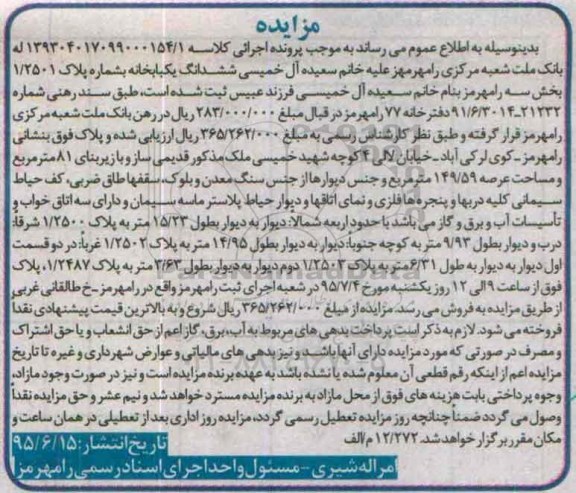 مزایده
بدینوسیله به اطلاع عموم می رساند به موجب پرونده اجرائی کلاسه ۱۳۹۳۰۴۰۱۷۰۹۹۰۰۰۱۵۴/۱ له
بانک ملت شعبه مرکزی رامهرمز علیه خانم سعیده آل خمیسی ششدانگ یکبابخانه بشماره پلاک ۱/۲۵۰۱
بخش سه رامهرمز بنام خانم سعیده آل خمیسی فرزند عبیس ثبت شده است، طبق سند رهنی شماره
۲۱۲۳۲-۹۱/۶/۳۰۱۴ دفترخانه ۷۷ رامهرمز در قبال مبلغ ۲۸۳/۰۰۰/۰۰۰ ریال در رهن بانک ملت شعبه مرکزی
رامهرمز قرار گرفته و طبق نظر کارشناس رسمی به مبلغ ۳۶۵/۲۶۲/۰۰۰ ریال ارزیابی شده و پلاک فوق بنشانی
رامهرمز-کوی لرکی آباد-خیابان لاله ۴ کوچه شهید خمیسی ملک مذکور قدیمی ساز و با زیربنای ۸۱ مترمربع
و مساحت عرصه ۱۴۹/۵۹ مترمربع و جنس دیوارها از جنس سنگ معدن و بلوک، سقفها طاق ضربی، کف حیاط
سیمانی کلیه دربها و پنجره ها فلزی و نمای اتاقها و دیوار حیاط پلاستر ماسه سیمان و دارای سه اتاق خواب و
تأسیسات آب و برق و گاز می باشد با حدود اربعه شمالا: دیوار به دیوار بطول ۱۵/۲۳ متر به پلاک ۱/۲۵۰۰ شرقا:
درب و دیوار بطول ۹/۹۳ متر به کوچه جنوبا: دیوار به دیوار بطول ۱۴/۹۵ متر به پلاک ۱/۲۵۰۲ غربا: در دو قسمت
اول دیوار به دیوار به طول ۶/۳۱ متر به پلاک ۱/۲۵۰۳ دوم دیوار به دیوار بطول ۳/۶۳ متر به پلاک ۱/۲۴۸۷، پلاک
فوق از ساعت ۹ الی ۱۲ روز یکشنبه مورخ ۹۵/۷/۴ در شعبه اجرای ثبت رامهرمز واقع در رامهرمز-خ طالقانی غربی
از طریق مزایده به فروش می رسد. مزایده از مبلغ ۳۶۵/۲۶۲/۰۰۰ ریال شروع و به بالاترین قیمت پیشنهادی نقدا
فروخته می شود. لازم به ذکر است پرداخت بدهی های مربوط به آب، برق، گاز اعم از حق انشعاب و یا حق اشتراک
و مصرف در صورتی که مورد مزایده دارای آنها باشد و نیز بدهی های مالیاتی و عوارض شهرداری و غیره تا تاریخ
مزایده اعم از اینکه رقم قطعی آن معلوم شده یا نشده باشد به عهده برنده مزایده است و نیز در صورت وجود مازاد،
وجوه پرداختی بابت هزینه های فوق از محل مازاد به برنده مزایده مسترد خواهد شد و نیم عشر و حق مزایده نقداً
وصول می گردد ضمناً چنانچه روز مزایده تعطیل رسمی گردد، مزایده روز اداری بعد از تعطیلی در همان ساعت و
مکان مقرر برگزار خواهد شد. ۱۲/۲۷۲ م/الف
تاریخ انتشار: ۹۵/۶/۱۵
امراله شیری-مسئول واحد اجرای اسناد رسمی رامهرمز